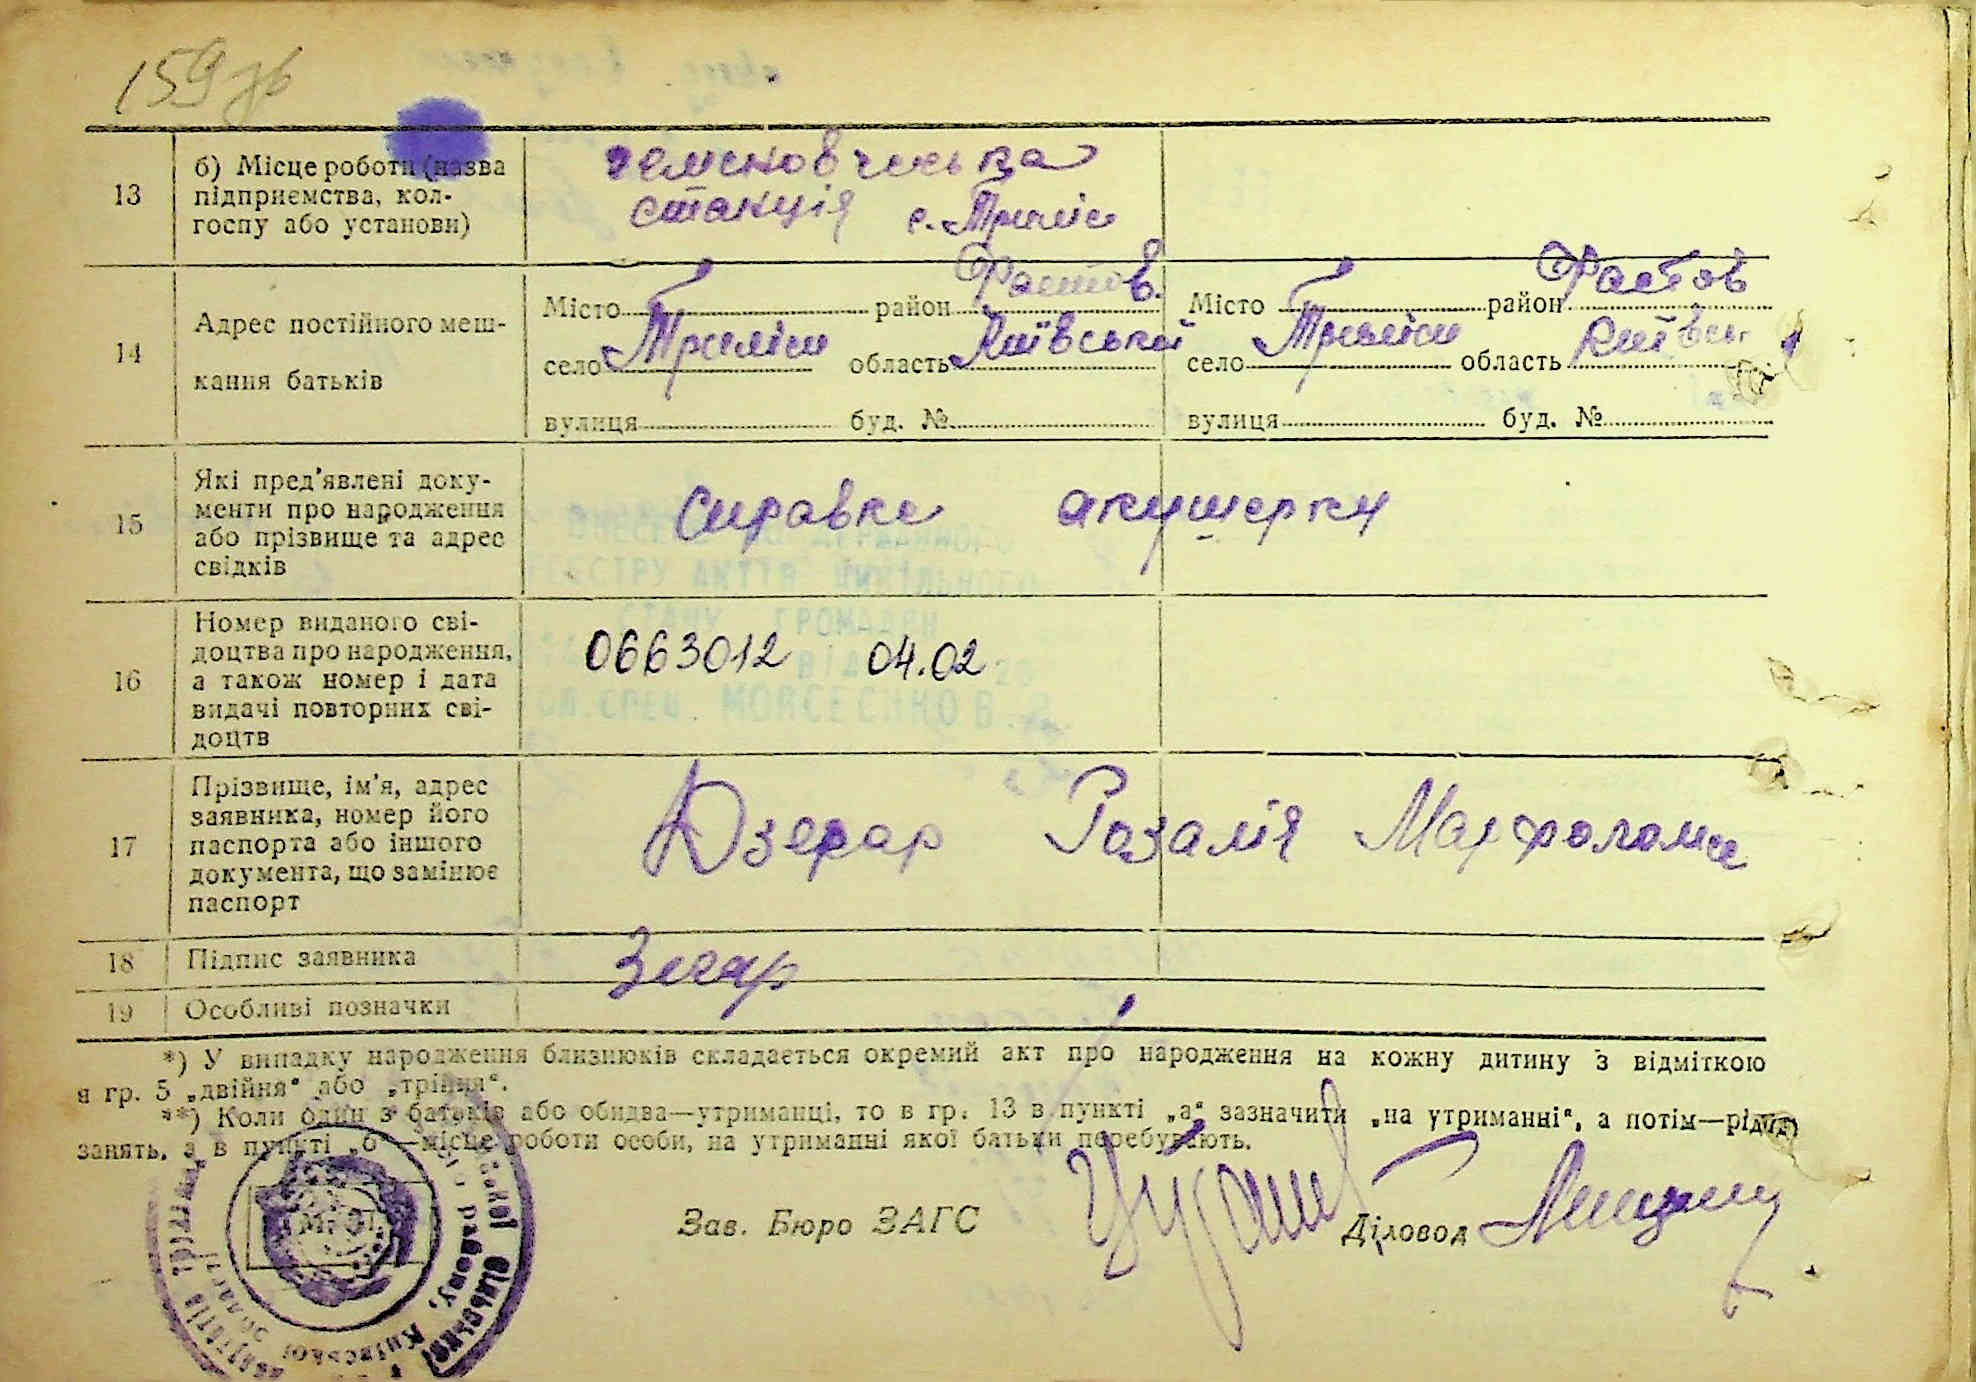 159 зв
13
б) Місце роботи (назва
підприємства, кол-
госпу або установи)
станція с. Триліси
14
Адрес постійного меш-
кання батьків
Місто район Фастов.
село Триліси область Київській
вулиця буд. №
Місто район Фастов
село Триліси область Київсь
вулиця буд. №
15
Які пред'явлені доку-
менти про народження
або прізвище та адрес
свідків
Справка акушерки
16
Номер виданого сві-
доцтва про народження,
а також номер і дата
видачі повторних сві-
доцтв
0663012 04.02
17
Прізвище, ім'я, адрес
заявника, номер його
паспорта або іншого
документа, що замінює
паспорт
Розалія
18
Підпис заявника
19
Особливі позначки
*) У випадку народження близнюків складається окремий акт про народження на кожну дитину з відміткою
в гр. 5 „двійня" або „трійня".
**) Коли один з батьків або обидва—утриманці, то в гр. 13 в пункті „а" зазначити „на утриманні", а потім—рід
занять, а в пункті „б"—місце роботи особи, на утриманні якої батьки перебувають.
Зав. Бюро ЗАГС
Діловод